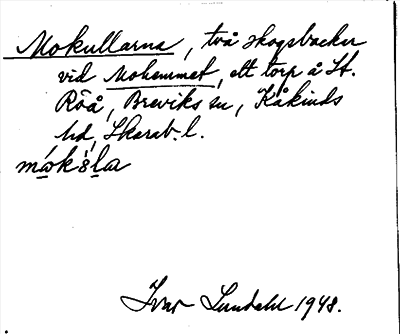 Mokullarna, två skogsbackar
vid Mohemmet, ett torp å St.
Röå, Breviks sn, Kåkinds
hd, Skarab. l.
mókə̀la
Ivar Lundahl 1948.